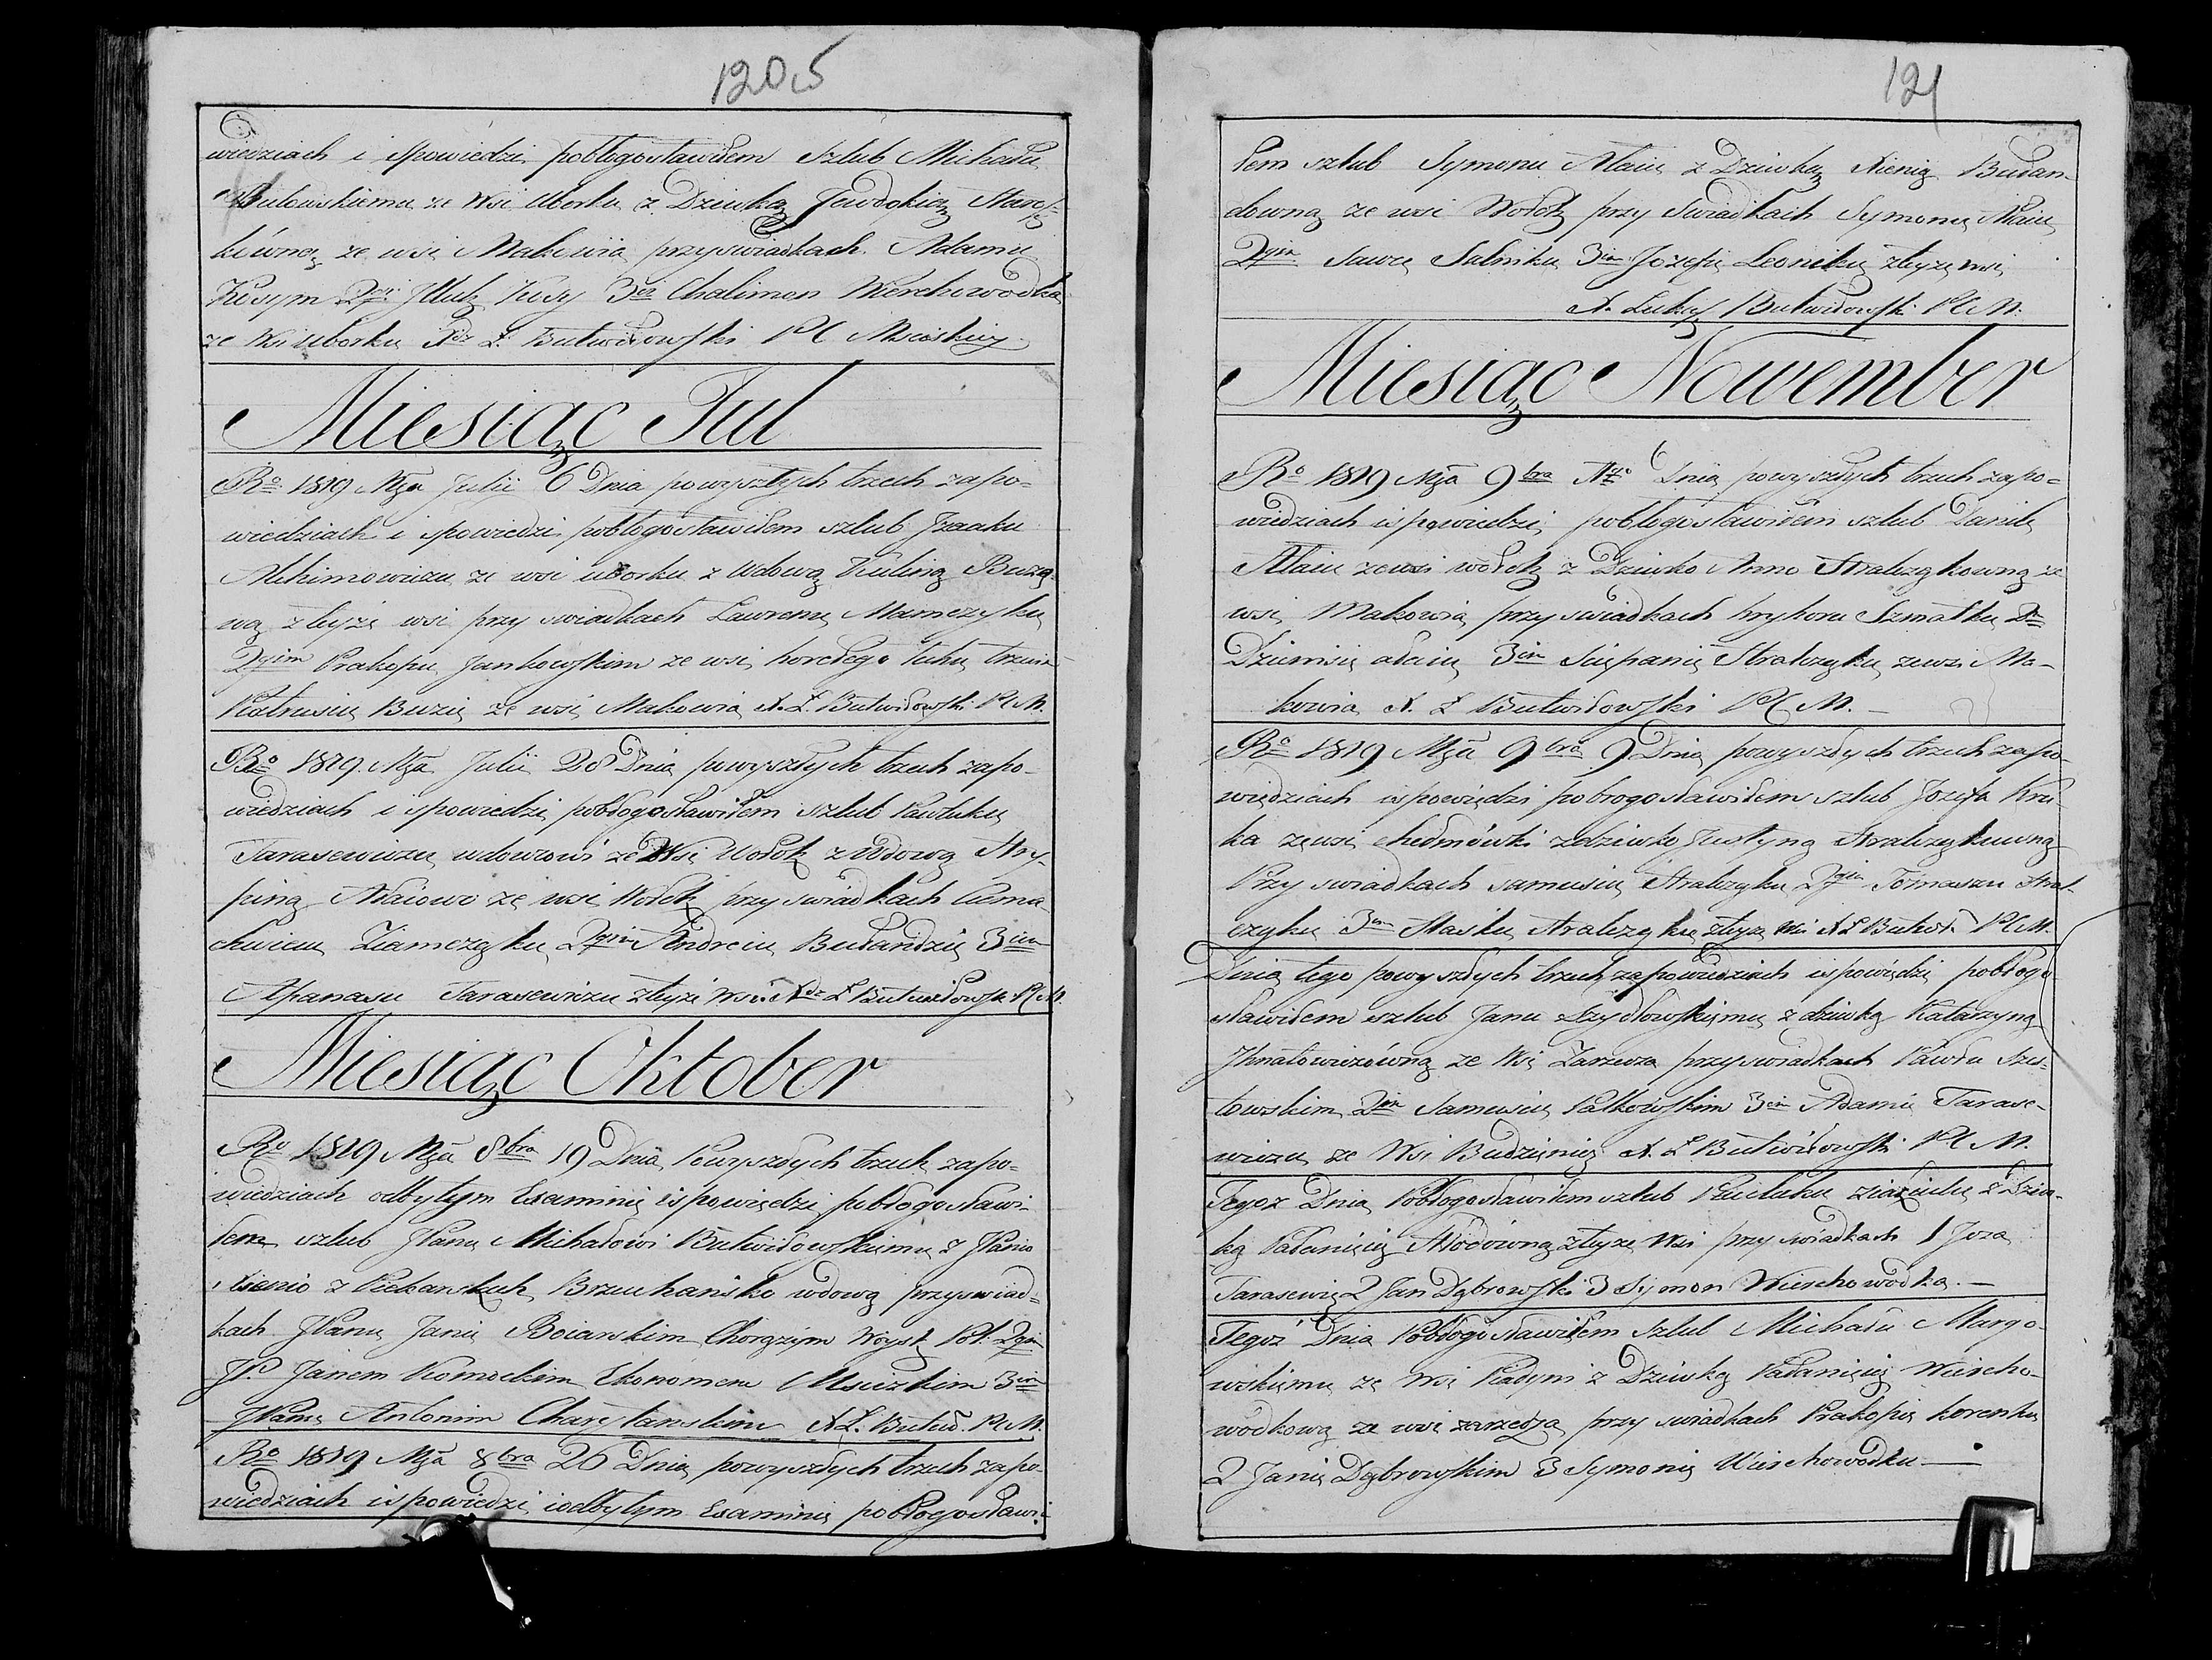 1205
wiedziach i spowiedzi pobłogosławiłem szlub Michału
Bułowskiemu ze Wsi Uborku z Dziewką Jewdokią Staroś-
kówną ze wsi Makowia przy swiadkach Adamu
Kosym 2gi Illuk Kosy 3ci Chalimon Wierchowodka
ze Wsi Uborku Xdz Ł. Butwiłowski P C Mscizkiey
Miesiąc Jul
Ro 1819 Mća Julii 6 Dnia powyszłych trzech zapo-
wiedziach i spowiedzi pobłogosławiłem szlub Izaaku
Akimowiczu ze wsi uborku z Wdową Kuliną Buzo-
wą z teyże wsi przy swiadkach Laurenu Mamczyku
2gim Prakopu Jankowskim ze wsi horełego luhu trzecim
Piotrusiu Buzie ze wsi Makowia X. Ł. Butwiłowski P C M.
Ro 1819 Mća Julii 28 Dnia powyszłych trzech zapo-
wiedziach i spowiedzi pobłogosławiłem szlub Pawluku
Tarasewiczu wdowcowi ze Wsi Wołok z Wdową Ahry-
piną Ałaiowo ze wsi Wołok przy swiadkach
Ziamczyku 2gim Andreiu Bułandzie 3cim
Apanasu Tarasewiczu z teyże wsi Xdz Ł Butwiłowski P C M.
Miesiąc Oktober
Ro 1819 Mća 8bra 19 Dnia Powyszłych trzech zapo-
wiedziach odbytym Examinie i spowiedzi pobłogosławi-
łem szlub JPanu Michałowi Butwiłowskiemu z JPanio
Xienio z Piekarskich Brzuchańsko wdową przy swiad-
kach JPanu Janie Boiarskim Chorążym Woysk Pol. 2gim
JP. Janem Komockim Ekonomem Mscizkim 3cim
JPanu Antonim X Ł. Butwił. P C M.
Ro 1819 Mća 8bra 26 Dnia powyszłych trzech zapo-
wiedziach i spowiedzi i odbytym Examinie pobłogosławi-
121
łem szlub Symonu Ałaiu z Dziewką Xienią Bułan-
downą ze wsi Wołok przy Swiadkach Symonu Ałaiu
2gim Sawce Salniku 3im Jozefie Leoniku z teyże wsi
X. Łukasz Butwiłowski P C M.
Miesiąc Nowember
Ro 1819 Mća 9bra Dnia powyszłych trzech zapo-
wiedziach i spowiedzi pobłogosławiłem szlub Daniłu
Ałaiu ze wsi wołok z Dziewko Anno Stralczykowną ze
wsi Makowia przy swiadkach hryhoru Szmatku 2m
Dziemisie ałaiu 3im Sciepanie Stralczyku ze wsi Ma-
kowia X. Ł Butwiłowski P C M.
Ro 1819 Mća 9bra 9 Dnia powyszłych trzech zapo-
wiedziach i spowiedzi pobrogosławiłem szlub Jozefa Kru-
ka ze wsi chełmówki z dziewko Justyną Stralczykowną
Przy swiadkach samusiu Stralczyku 2gim Tomaszu Stral-
czyku 3im Stasiku Stralczyku z teyże Wsi X Ł Butwił. P C M.
Dnia tego powyszłych trzech zapowiedziach i spowiedzi pobłogo-
sławiłem szlub Janu Szydłowskiemu z dziewką Katarzyną
Ihnatowiczówną ze Wsi Zarzecza przy swiadkach Pawłu
2im Samusiu Pałkowskim 3im Adamie Tarase-
wiczu ze Wsi Budzieniicz X. Ł. Butwiłowski P C M.
Tegoż Dnia Pobłogosławiłem szlub z Dziew-
ką Pałanieią z teyże Wsi przy swiadkach 1 Joza
Tarasewic 2 Jan Dąbrowski 3 Symon Wierchowodka.
Tegoż Dnia Pobłogosławiłem Szlub Michału Margo-
wskiemu ze wsi z Dziewką Pałanieią Wiercho-
wodkową ze wsi zarzecza przy swiadkach Prakopie korenku
2 Janie Dąbrowskim 3 Symonie Wierchowodku